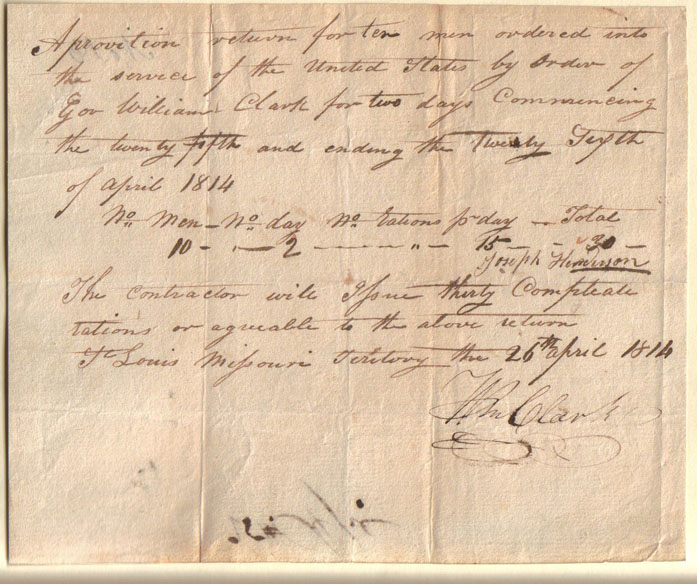 A provition return for ten men ordered into
the service of the United States by order of
Gov William Clark for two days Commencing
the twenty fifth and ending the twenty Sixth
of april 1814
No. Men - No. day No. rations pr day - Total
10 - " - 2 - " - 15 - - 30 -
Joseph Henderson
The contractor will Issue thirty Compleate
rations or agreable to the above return
St Louis Missouri Territory the 26th april 1814
Wm Clark